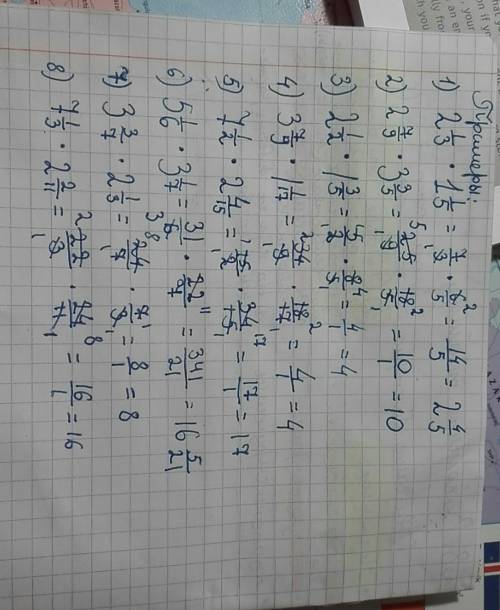 Примеры:
1) 2 1/3 · 1 1/5 = 7/3 · 6/5 = 14/5 = 2 4/5
2) 2 7/9 · 3 3/5 = 25/9 · 18/5 = 10/1 = 10
3) 2 1/2 · 1 3/5 = 5/2 · 8/5 = 4/1 = 4
4) 3 7/9 · 1 1/17 = 34/9 · 18/17 = 4/1 = 4
5) 7 1/2 · 2 4/15 = 15/2 · 34/15 = 17/1 = 17
6) 5 1/6 · 3 1/7 = 31/6 · 22/7 = 341/21 = 16 5/21
7) 3 3/7 · 2 1/3 = 24/7 · 7/3 = 8/1 = 8
8) 7 1/3 · 2 2/11 = 22/3 · 24/11 = 16/1 = 16